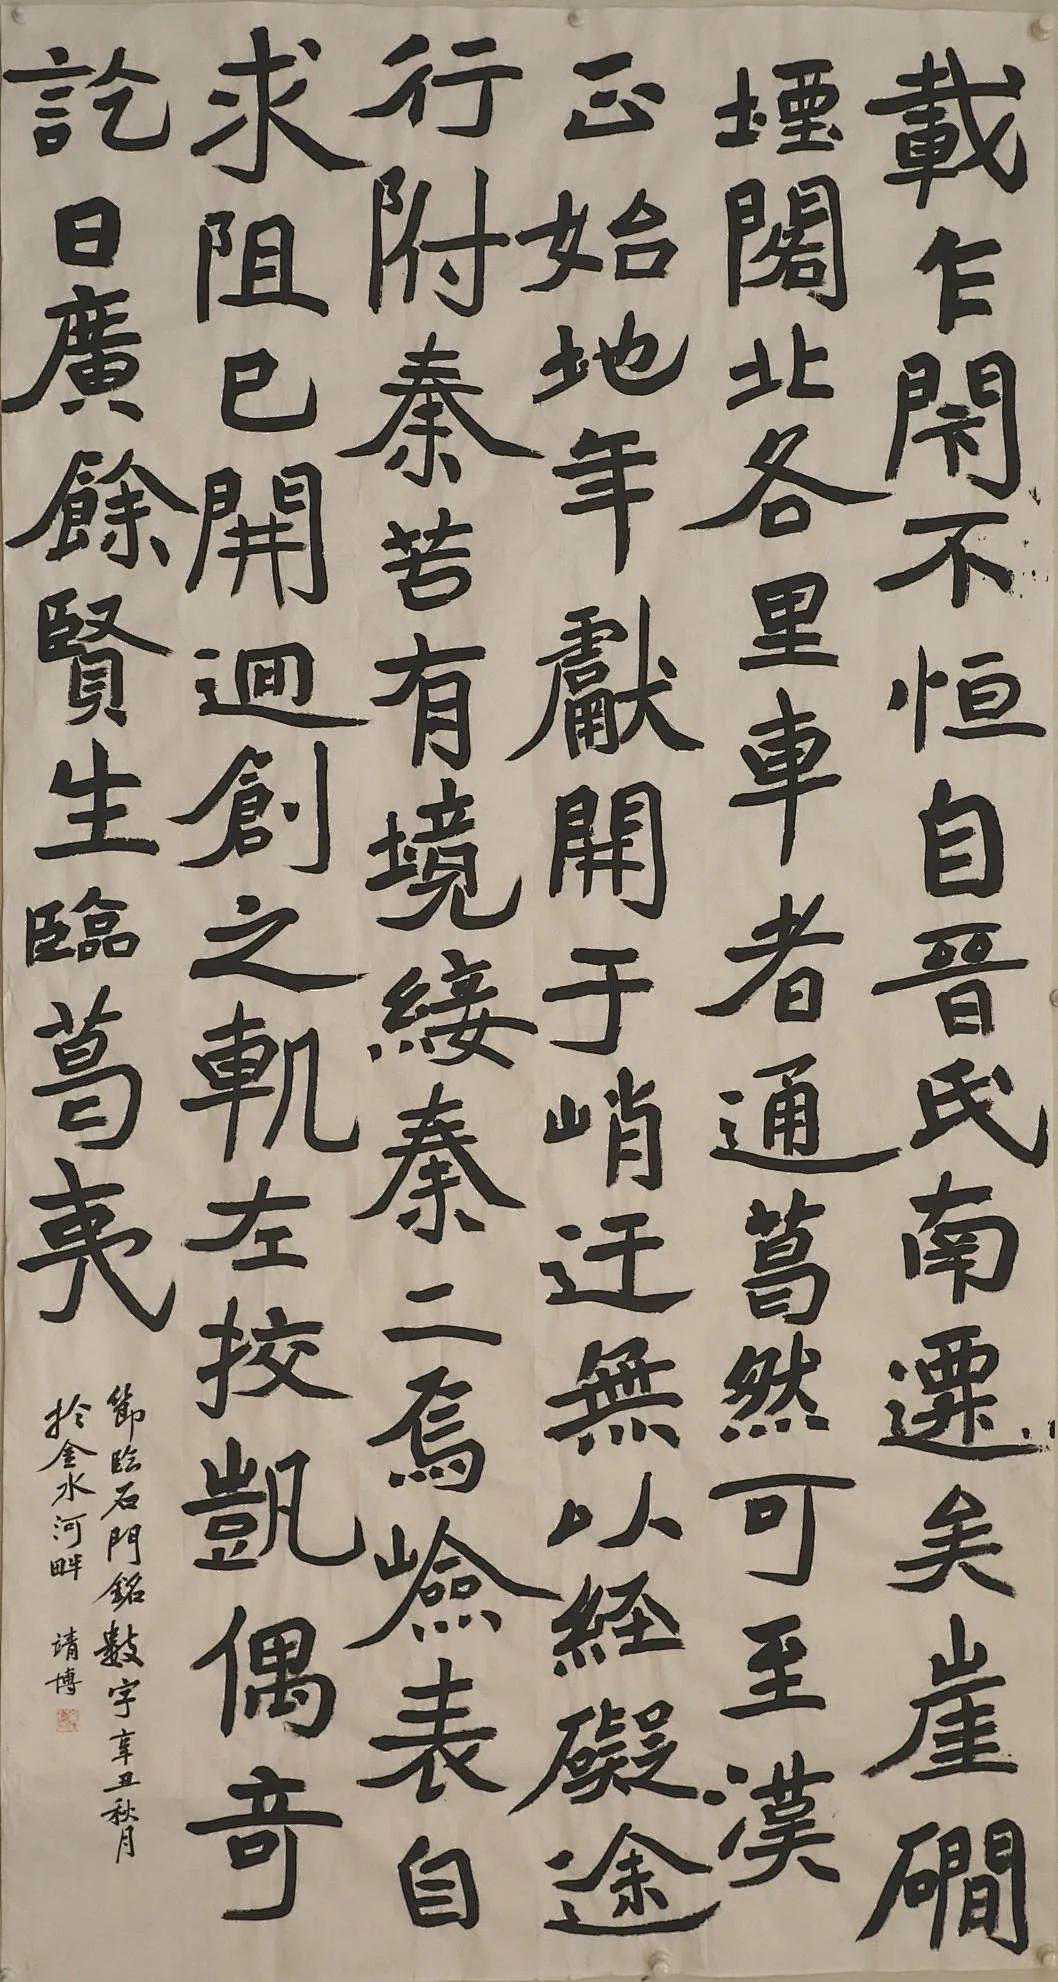 載乍閇不恒自晉氏南遷矣崖磵
堙閣北各里車者通葛然可至漢
正始地年獻開于峭迂無以経礙途
行附秦苦有境綏秦二焉嶮表自
求阻已開迴創之軌左挍凱偶奇
訖日廣餘賢生臨葛夷
節臨石門銘數字辛丑秋月
於金水河畔 靖博